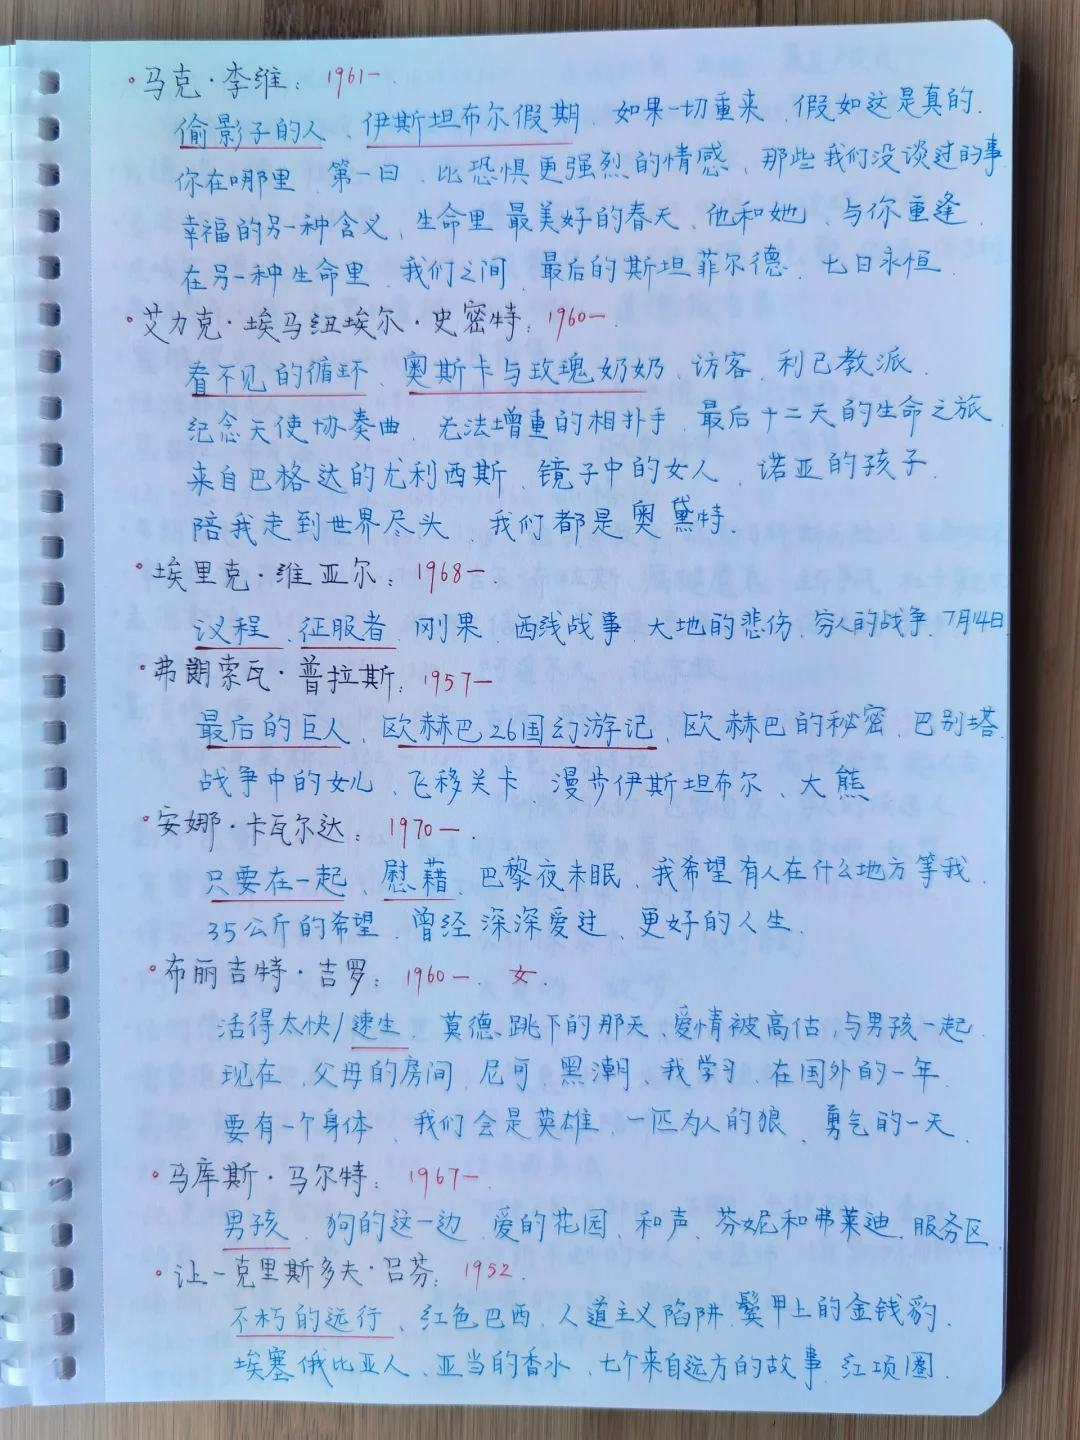 ·马克·李维：1961—.
偷影子的人、伊斯坦布尔假期、如果一切重来、假如这是真的.
你在哪里、第一日、比恐惧更强烈的情感、那些我们没谈过的事
幸福的另一种含义、生命里最美好的春天、他和她、与你重逢、
在另一种生命里、我们之间、最后的斯坦菲尔德、七日永恒.
·艾力克·埃马纽埃尔·史密特：1960—.
看不见的循环、奥斯卡与玫瑰奶奶、访客、利己教派.
纪念天使协奏曲、无法增重的相扑手、最后十二天的生命之旅
来自巴格达的尤利西斯、镜子中的女人、诺亚的孩子.
陪我走到世界尽头、我们都是奥黛特.
·埃里克·维亚尔：1968—.
议程、征服者、刚果、西线战事、大地的悲伤、穷人的战争、7月14日
·弗朗索瓦·普拉斯：1957—
最后的巨人、欧赫巴26国幻游记、欧赫巴的秘密、巴别塔.
战争中的女儿、飞移关卡、漫步伊斯坦布尔、大熊
·安娜·卡瓦尔达：1970—.
只要在一起、慰藉、巴黎夜未眠、我希望有人在什么地方等我.
35公斤的希望、曾经深深爱过、更好的人生.
·布丽吉特·吉罗：1960—.女.
活得太快/速生、莫德、跳下的那天、爱情被高估、与男孩一起.
现在、父母的房间、尼可、黑潮、我学习、在国外的一年.
要有一个身体、我们会是英雄、一匹为人的狼、勇气的一天.
·马库斯·马尔特：1967—.
男孩、狗的这一边、爱的花园、和声、芬妮和弗莱迪、服务区
·让-克里斯多夫·吕芬：1952.
不朽的远行、红色巴西、人道主义陷阱、鬓甲上的金钱豹.
埃塞俄比亚人、亚当的香水、七个来自远方的故事、红项圈.